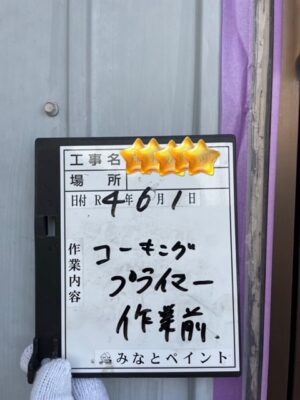 工事名
場所
日付 R4年6月1日
作業内容
コーキング
プライマー
作業前.
みなとペイント